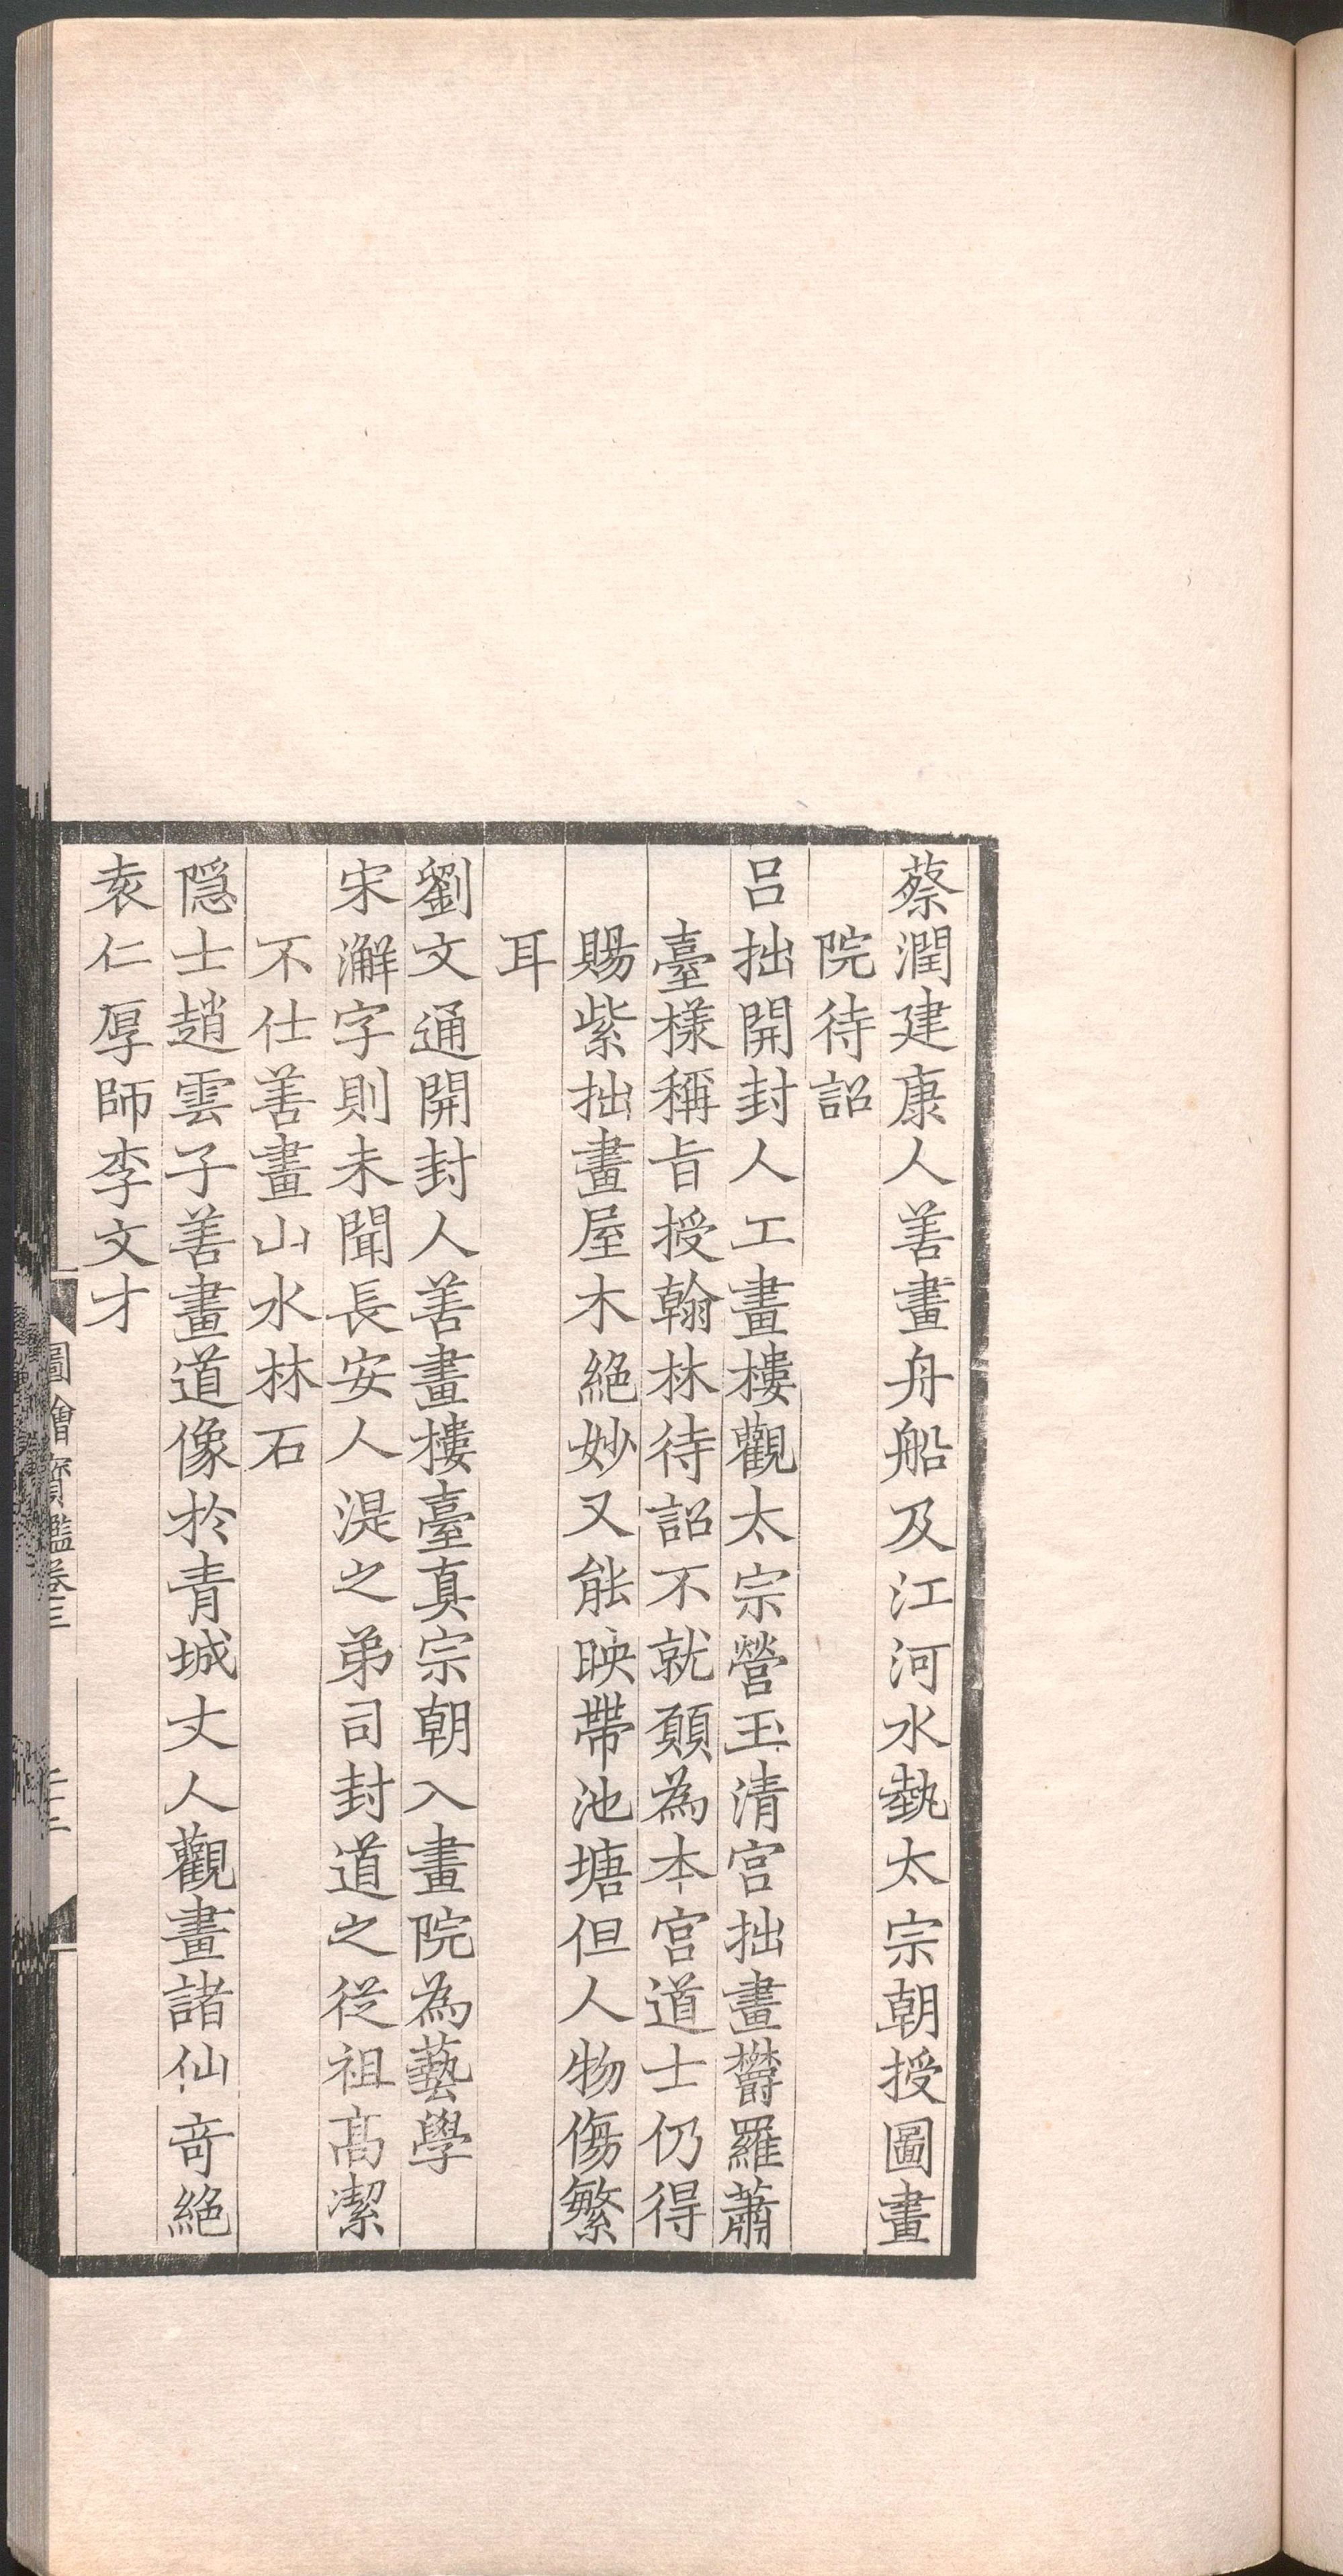 蔡潤建康人善畫舟船及江河水勢太宗朝授圖畫
院待詔
呂拙開封人工畫樓觀太宗營玉清宫拙畫欝羅蕭
臺樣稱旨授翰林待詔不就願為本宫道士仍得
賜紫拙畫屋木絶妙又能映帶池塘但人物傷繁
耳
劉文通開封人善畫樓臺真宗朝入畫院為藝學
宋澥字則未聞長安人湜之弟司封道之從祖髙潔
不仕善畫山水林石
隠士趙雲子善畫道像於青城丈人觀畫諸仙竒絶
袁仁厚師李文才
圖繪寶鑑卷三
二十二